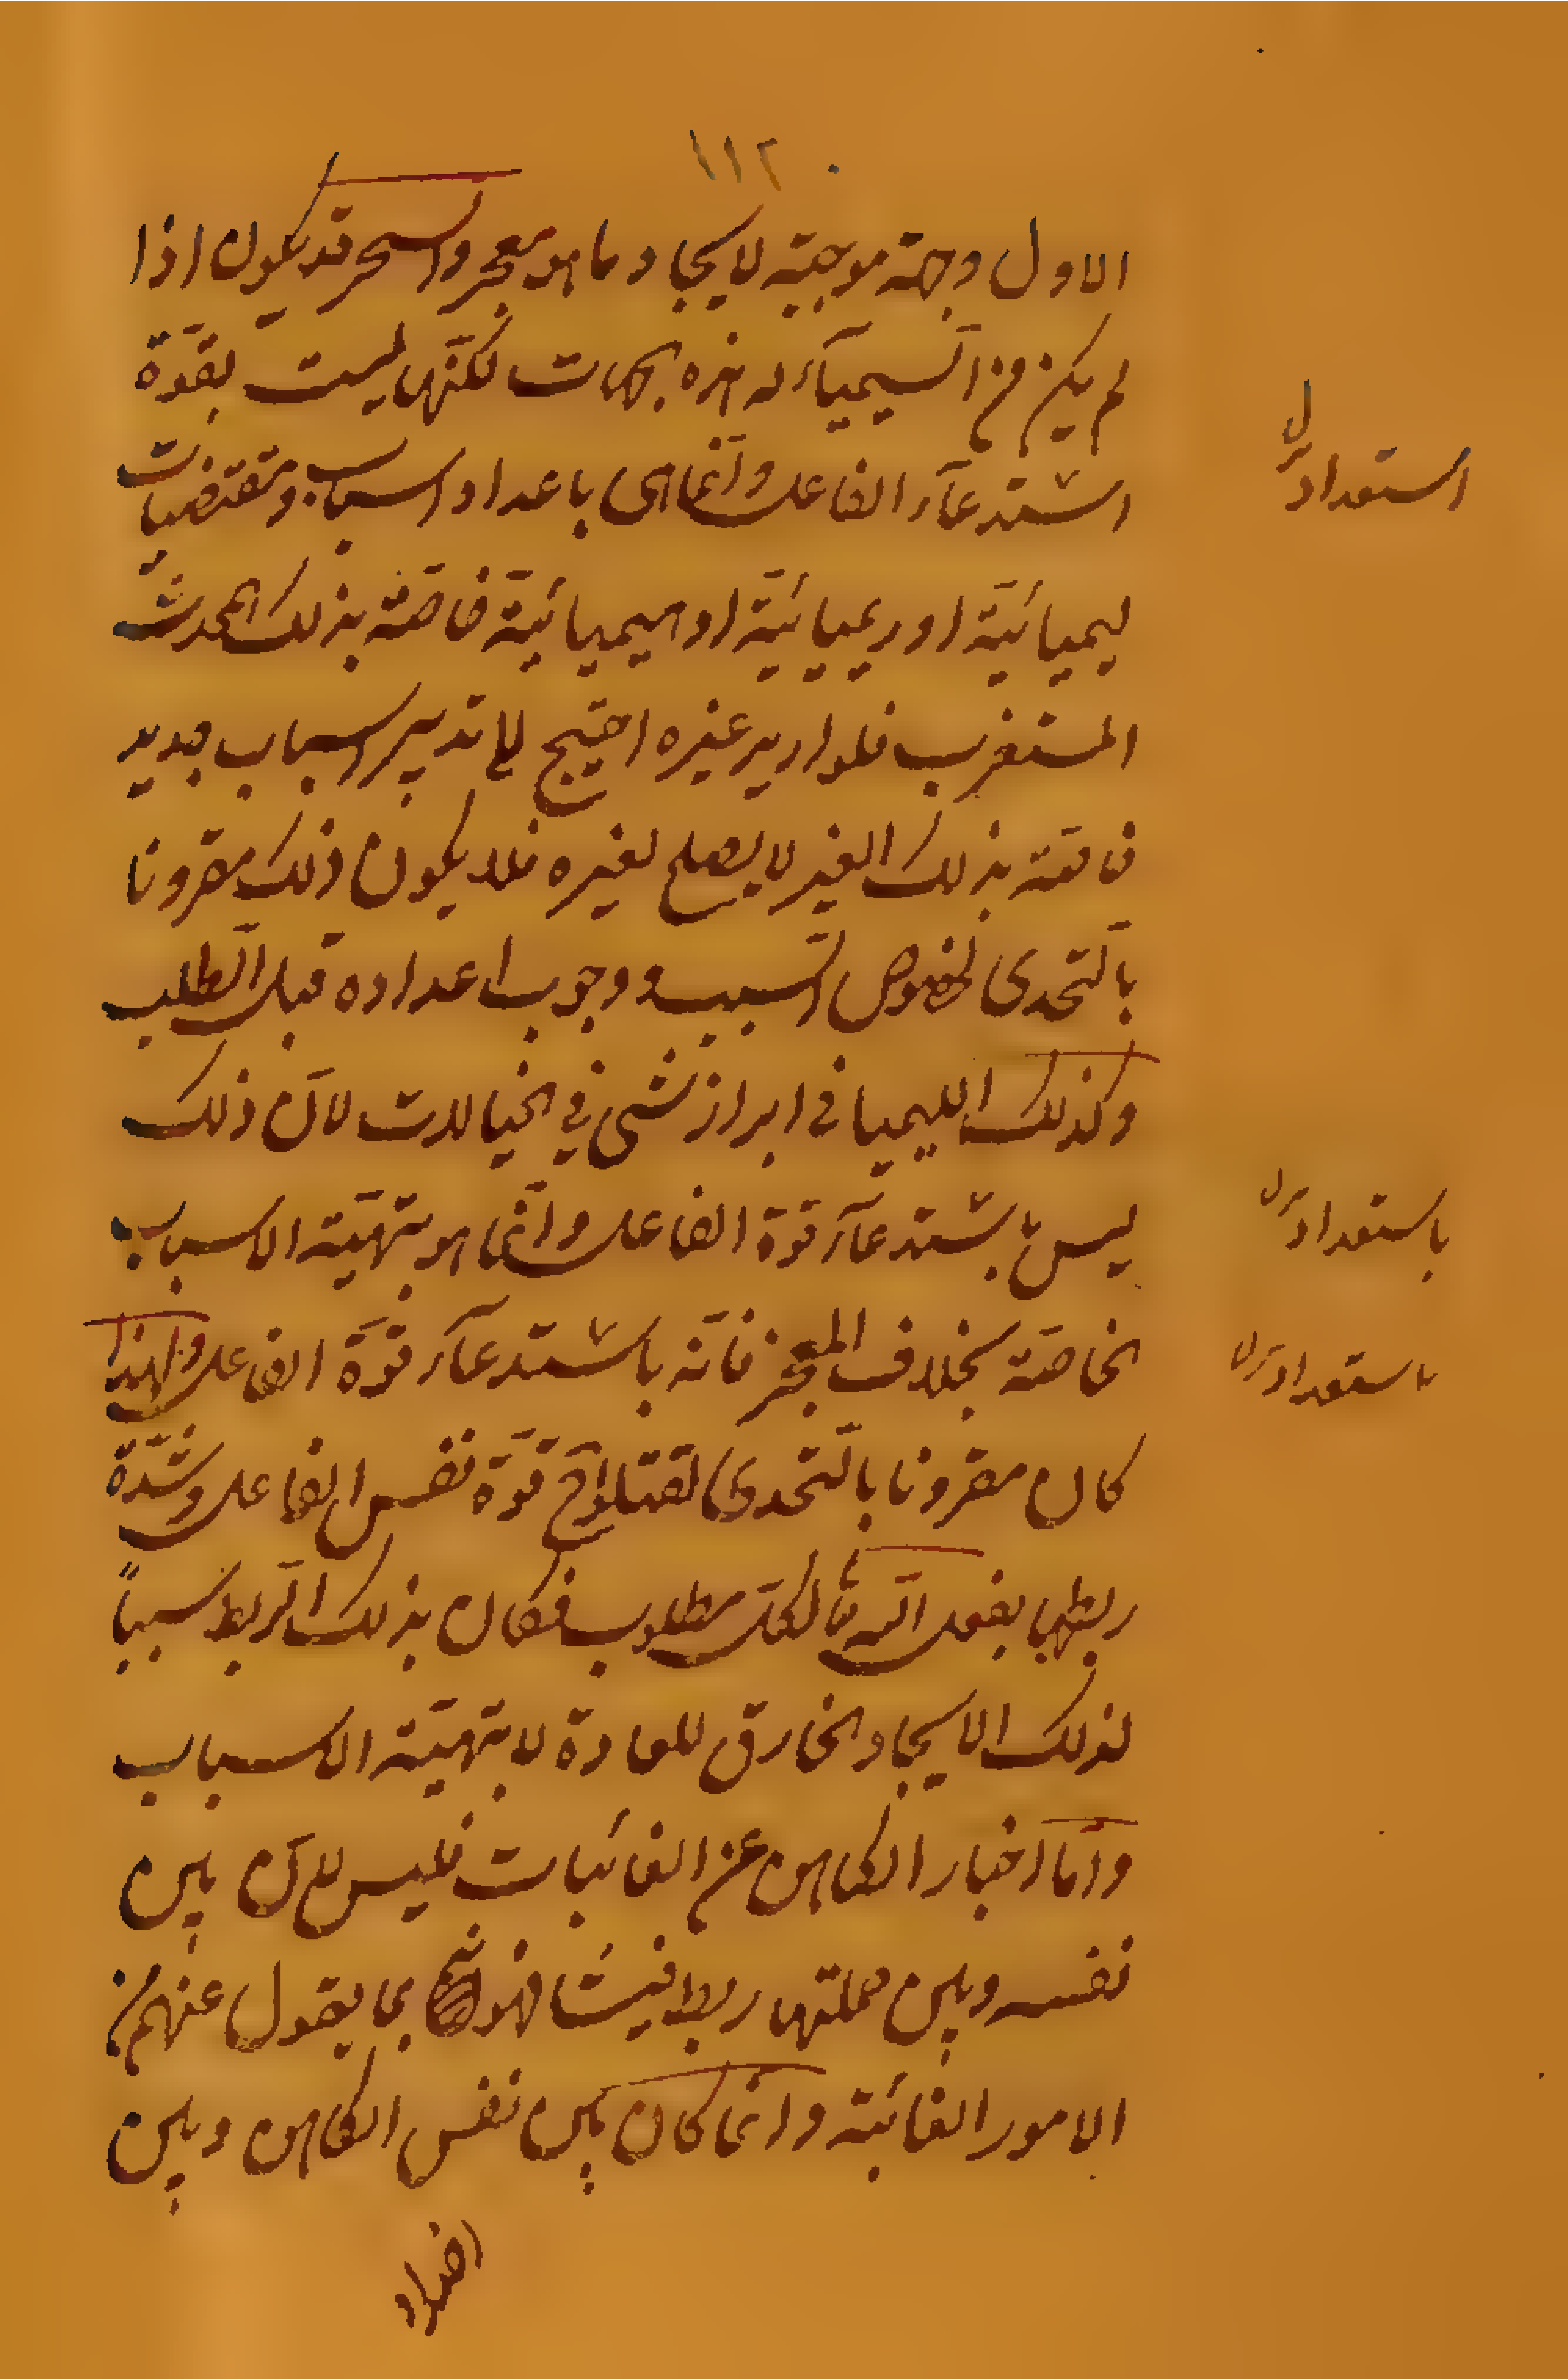 ١١٢
الاول وجهة موجبة لايجاد ما هو معجز والسحر قد يكون اذا
لم يكن من السيمياء له هذه الجهات لكنّها ليست بقوّة
استدعآء الفاعل وانّما هى باعداد اسباب ومقتضيات
ليميائيّة او ريميائيّة او هيميائيّة خاصّة بذلك الحدث
المستغرب فلو اريد غيره احتيج الى تدبير اسباب جديد
خاصّة بذلك الغير لا يصلح لغيره فلا يكون ذلك مقرونا
بالتّحدى لخصوص السّبب ووجوب اعداده قبل الطّلب
وكذلك الليميا فى ابراز شى فى الخيالات لانّ ذلك
ليس باستدعآء قوة الفاعل وانّما هو بتهيّة الاسباب
الخاصّة بخلاف المعجز فانّه باستدعآء قوّة الفاعل ولهذا
كان مقرونا بالتّحدى قوّة نفس الفاعل وشدّة
ربطها بفعل اللّه تع لكلّ مطلوب فكان بذلك الرّبط سبباً
لذلك الايجاد الخارق للعادة لا بتهيّة الاسباب
وامّا اخبار الكاهن عن الغائبات فليس لانّ بين
نفسه وبين جملتها ربط بما يقول عنهم من
الامور الغائبة وانّما كان بين نفس الكاهن وبين
افراد
استعداد ل
باستعداد ل
باستعداد ل